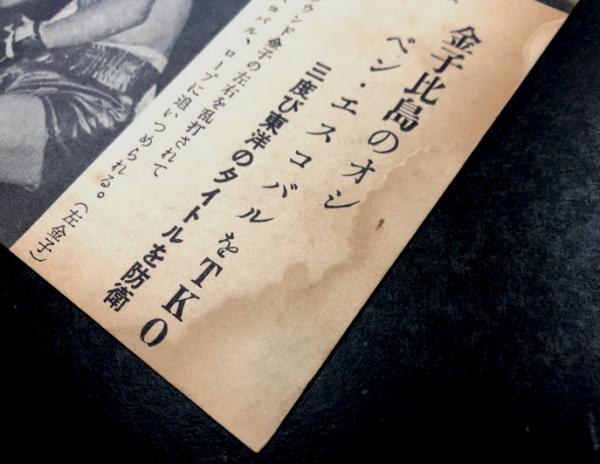 金子比島のオシ
ベン・エスコバルをTKO
三度び東洋のタイトルを防衛
ウンド金子の左右を乱打されて
コバル、ロープに追いつめられる。(左金子)